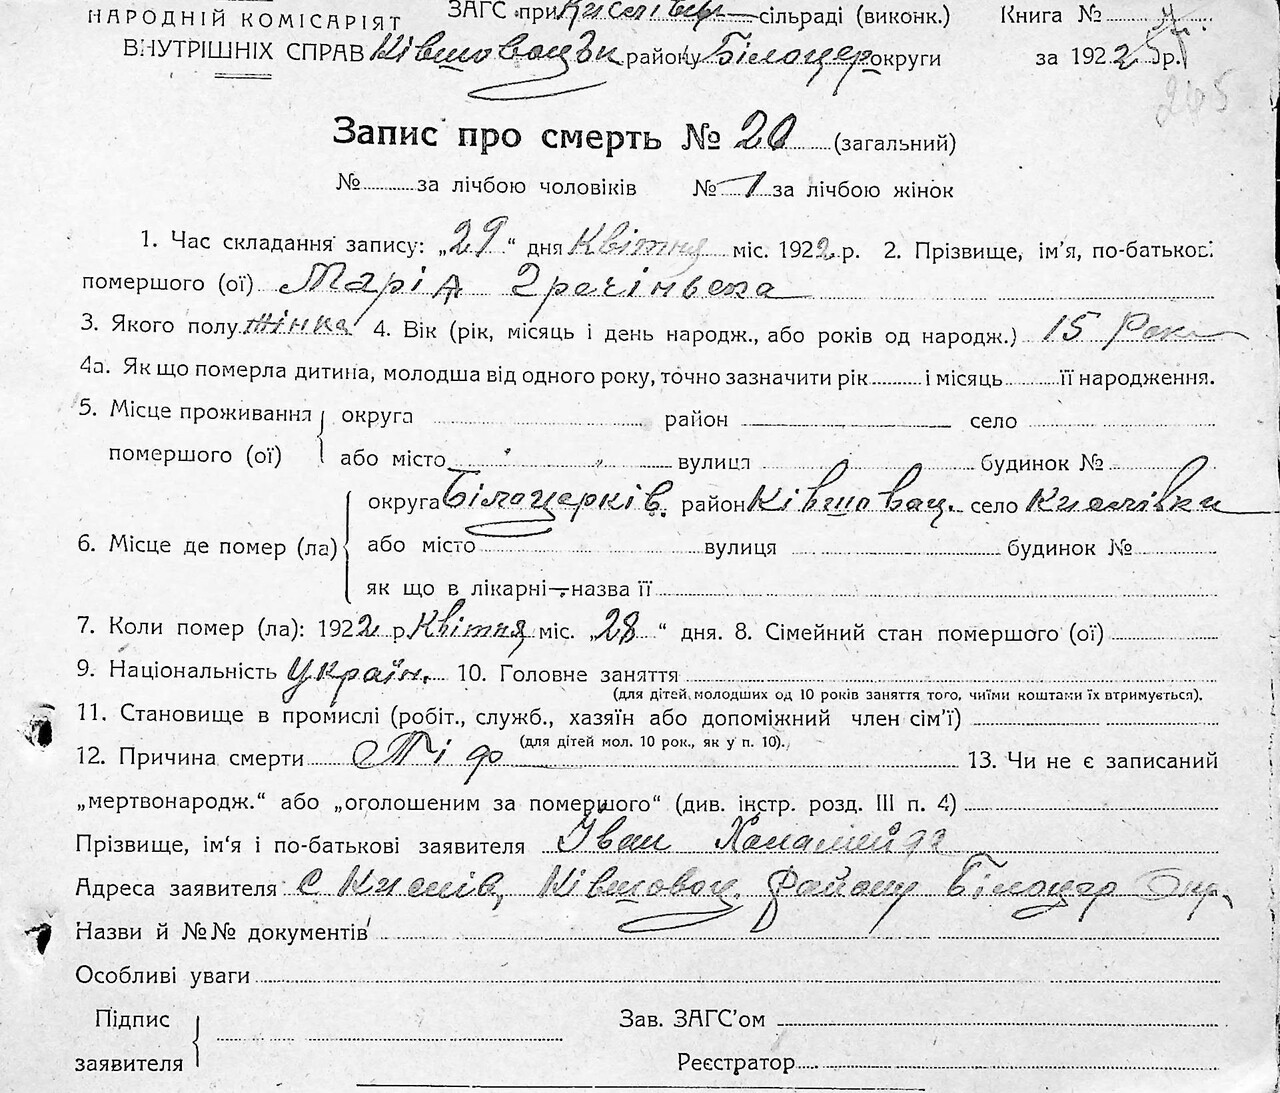 НАРОДНІЙ КОМІСАРІЯТ ЗАГС при сільраді (виконк.) Книга №
ВНУТРІШНІХ СПРАВ району Білоцер округи за 1922 р.
265
Запис про смерть № 20 (загальний)
№ за лічбою чоловіків № 1 за лічбою жінок
1. Час складання запису: „29“ дня Квітня міс. 1922 р. 2. Прізвище, ім'я, по-батькові
помершого (ої) Марія
3. Якого полу жінка 4. Вік (рік, місяць і день народж., або років од народж.) 15 Рок
4а. Як що померла дитина, молодша від одного року, точно зазначити рік і місяць її народження.
5. Місце проживання округа район село
помершого (ої) або місто вулиця будинок №
округа Білоцерків. район Ківшовац. село Кислівки
6. Місце де помер (ла) або місто вулиця будинок №
як що в лікарні—назва її
7. Коли помер (ла): 1922 р. Квітня міс. „28“ дня. 8. Сімейний стан помершого (ої)
9. Національність Україн. 10. Головне заняття
(для дітей молодших од 10 років заняття того, чиїми коштами їх втримується).
11. Становище в промислі (робіт., служб., хазяїн або допоміжний член сім'ї)
(для дітей мол. 10 рок., як у п. 10).
12. Причина смерти Тіф 13. Чи не є записаний
„мертвонародж.“ або „оголошеним за помершого“ (див. інстр. розд. III п. 4)
Прізвище, ім'я і по-батькові заявителя Іван
Адреса заявителя с Кислів, Ківшовац. Району Білоцер Окр,
Назви й №№ документів
Особливі уваги
Підпис Зав. ЗАГС'ом
заявителя Реєстратор